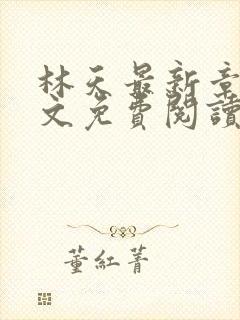 林天最新章
文免費閱讀
董紅菁